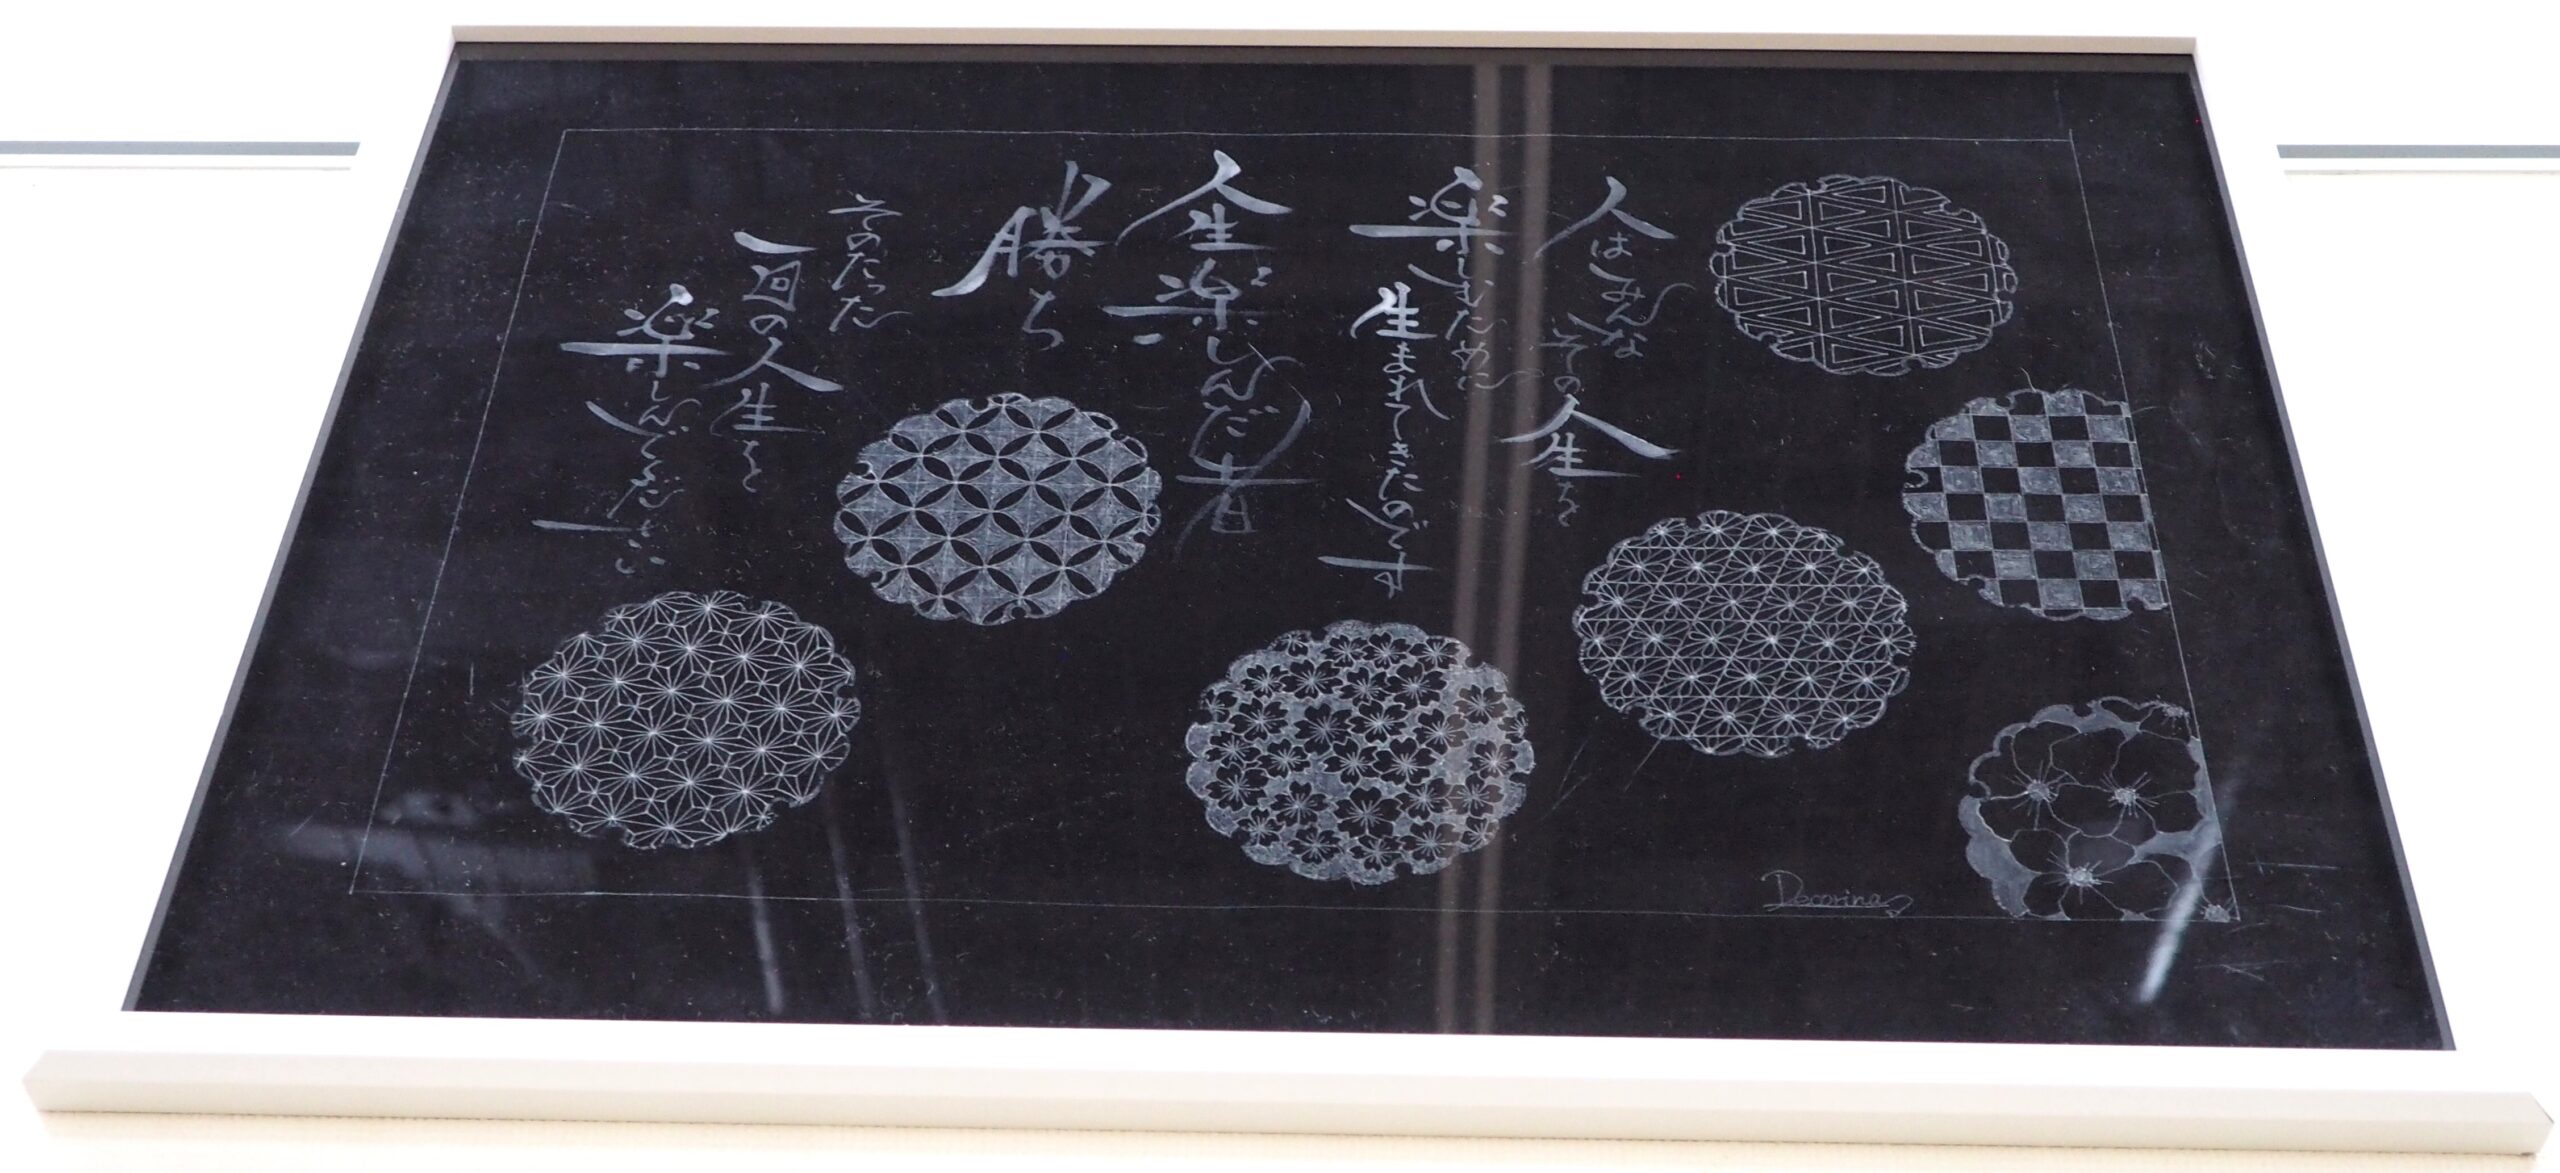 人はみんな
その人生を
楽しむために
生まれてきたのです
人生楽しんだ者
勝ち
そのたった
一回の人生を
楽しんでください
Decorina